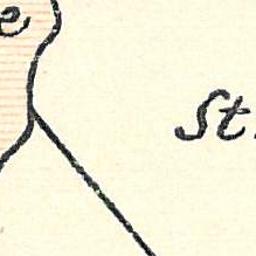 e
St.